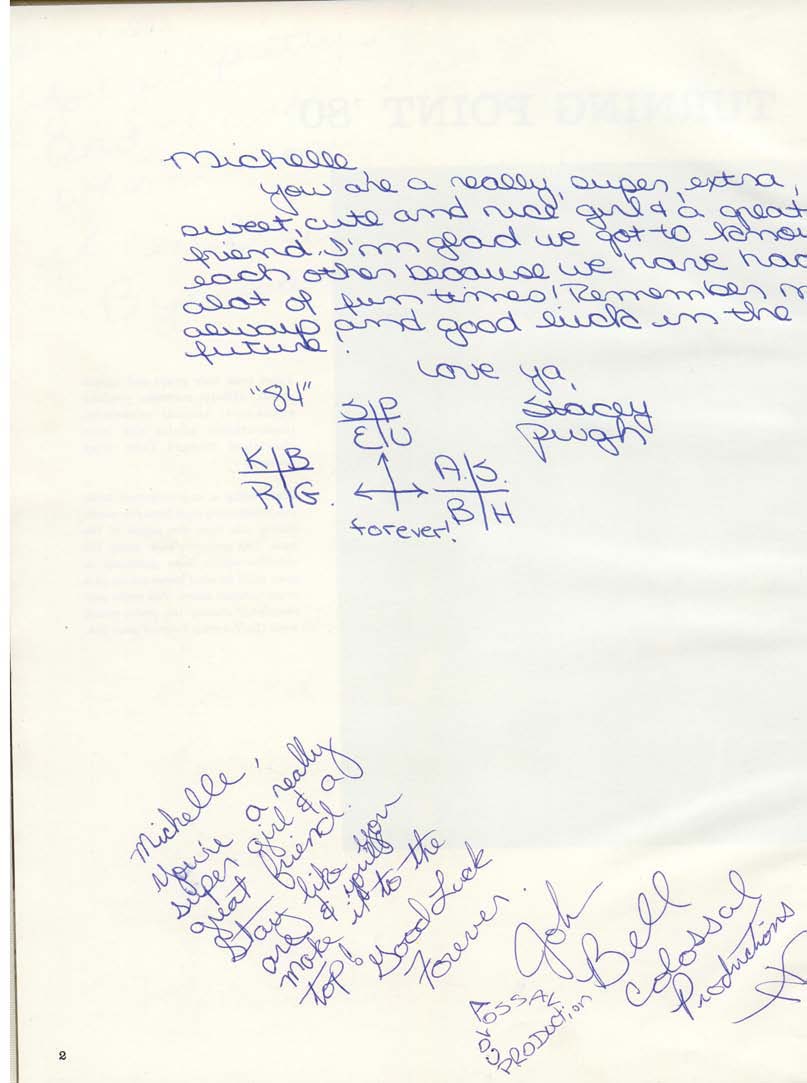 TURNING POINT '80
Michelle,
You are a really, super, extra,
sweet, cute and nice girl & a great
friend. I'm glad we got to know
each other because we have had
alot of fun times! Remember m
always, and good luck in the
future!
Love ya,
Stacey
Pugh
"84"
S|P
E|U
K|B
R|G.
A.|S.
B|H
forever!
Michelle,
You're a really
super girl & a
great friend.
Stay like you
are & you'll
make it to the
top! Good Luck
Forever.
Joh
Bell
Colossal
Productions
A
COLOSSAL
PRODUCTION
2